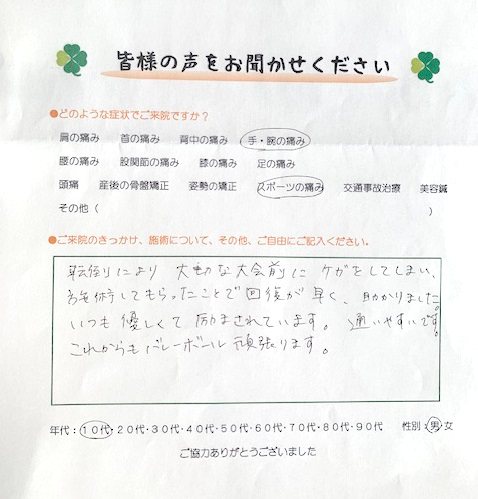 皆様の声をお聞かせください
●どのような症状でご来院ですか？
肩の痛み 首の痛み 背中の痛み 手・腕の痛み
腰の痛み 股関節の痛み 膝の痛み 足の痛み
頭痛 産後の骨盤矯正 姿勢の矯正 スポーツの痛み 交通事故治療 美容鍼
その他（ ）
●ご来院のきっかけ、施術について、その他、ご自由にご記入ください。
転倒により 大切な大会前に ケガをしてしまい、
施術してもらったことで回復が早く、助かりました。
いつも優しくて励まされています。通いやすいです。
これからもバレーボール頑張ります。
年代：１０代・２０代・３０代・４０代・５０代・６０代・７０代・８０代・９０代 性別：男・女
ご協力ありがとうございました